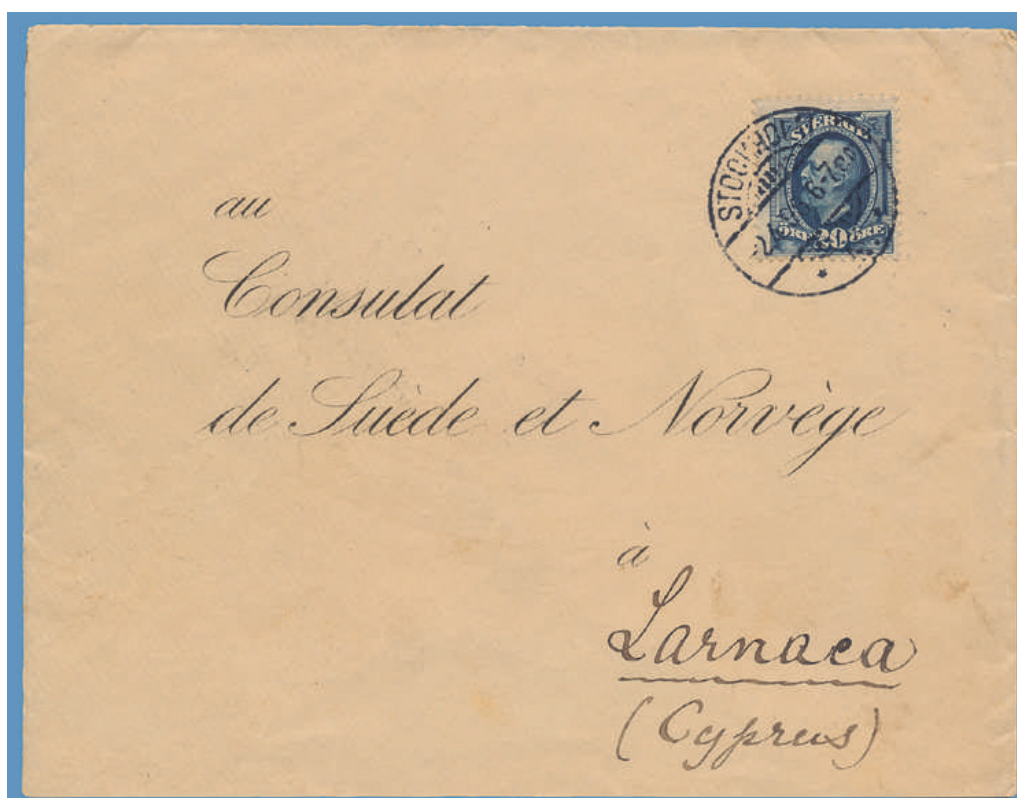 STOCKHOLM
SVERIGE
ÖRE 20 ÖRE
au
Consulat
de Suède et Norvège
à
Larnaca
(Cyprus)